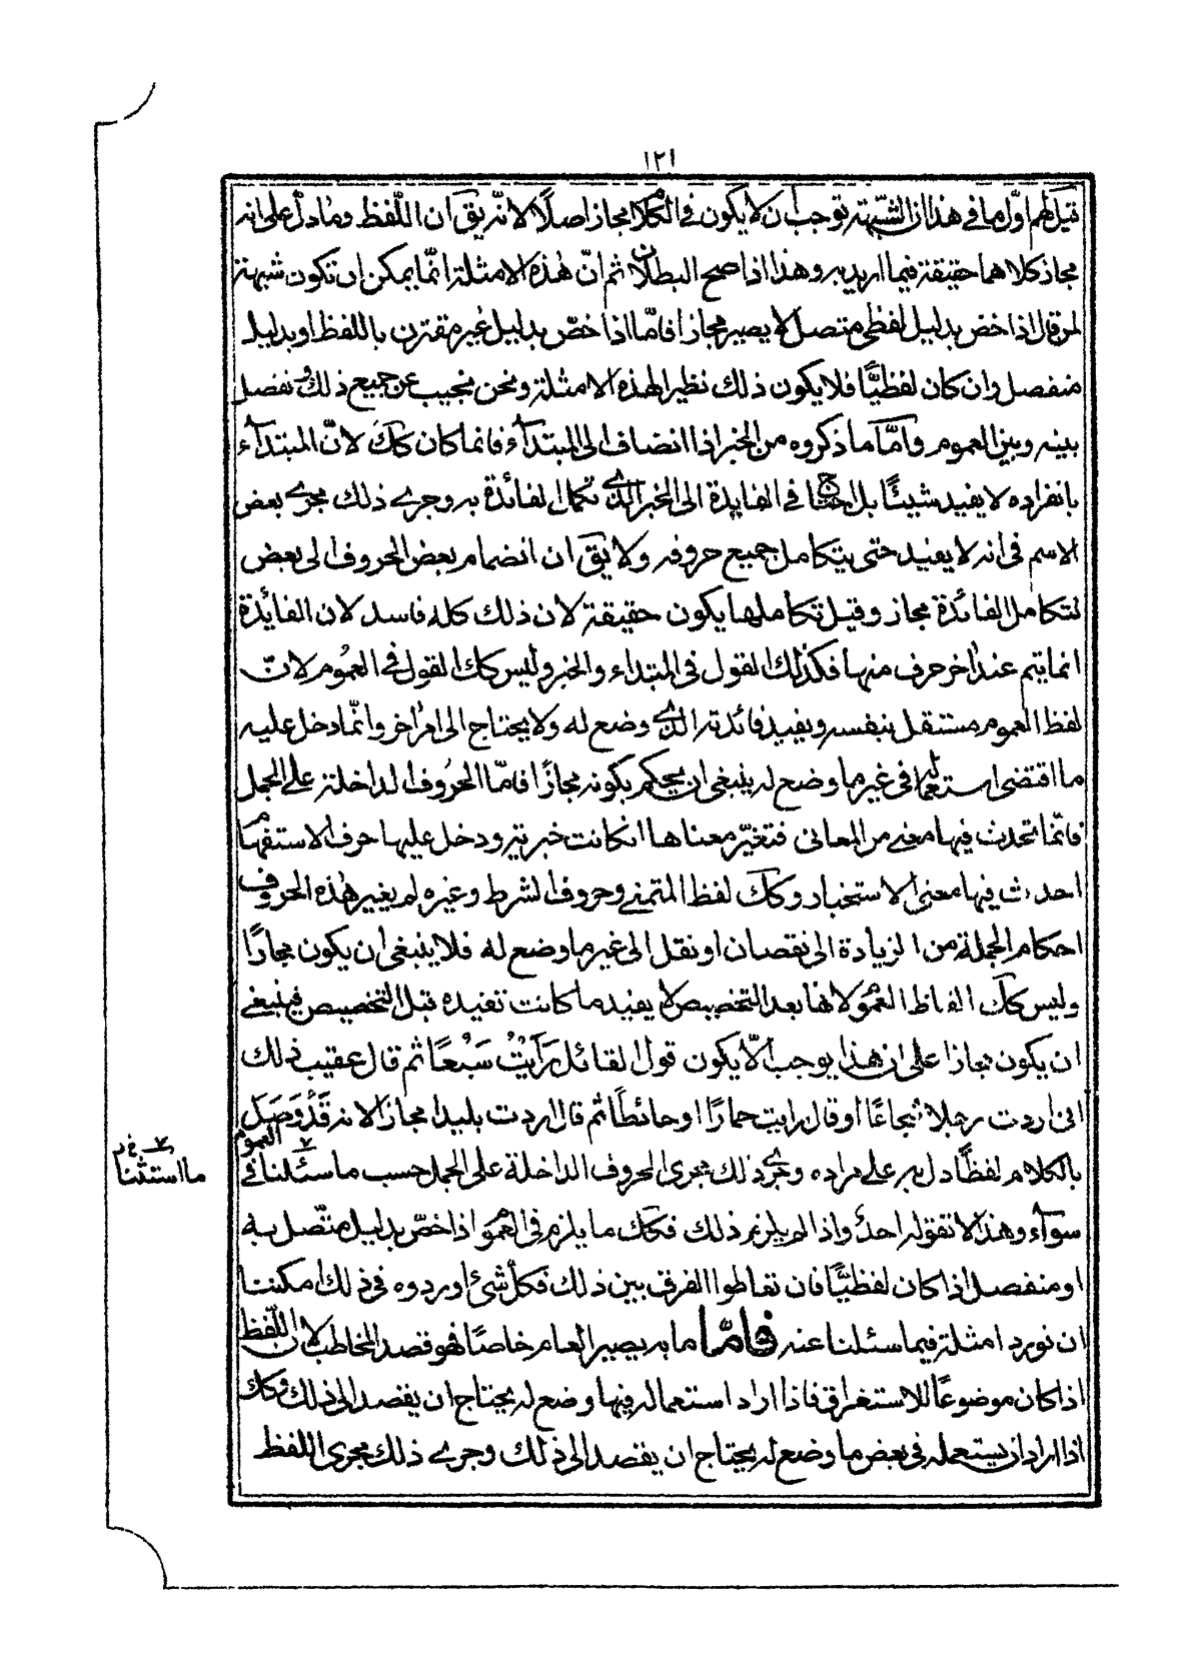 ١٢١
قيل لهم اوّل ما في هذا ان الشبهة توجب ان لا يكون في الكلام مجاز اصلًا لانّه يق ان اللّفظ وما دلّ على انه
مجاز كلاهما حقيقة فيما اريد به وهذا اذا صح البطلان ثم انّ هذه الامثلة انّما يمكن ان تكون شبهة
لمن قال اذا خص بدليل لفظي متصل لا يصير مجازا فامّا اذا خصّ بدليل غير مقترن باللفظ او بدليل
منفصل وان كان لفظيًّا فلا يكون ذلك نظير الهذه الامثلة ونحن نجيب عن جميع ذلك ونفصل
بينه وبين العموم وامّا ما ذكروه من الخبر اذا انضاف الى المبتدآء فانما كان كك لانّ المبتدآء
بانفراده لا يفيد شيئًا بل احتاج في الفايدة الى الخبر الذي تكمل الفائدة به وجرى ذلك مجرى بعض
الاسم في انه لا يفيد حتى يتكامل جميع حروفه ولا يق ان انضمام بعض الحروف الى بعض
لتكامل الفائدة مجاز وقيل تكاملها يكون حقيقة لان ذلك كله فاسد لان الفائدة
انما يتم عند اخر حرف منها فكذلك القول في المبتداء والخبر وليس كك القول في العموم لانّ
لفظ العموم مستقل بنفسه ويفيد فائدته الذي وضع له ولا يحتاج الى امرٍ اخر وانّما دخل عليه
ما اقتضى استعماله في غير ما وضع له ينبغى ان يحكم بكونه مجازًا فامّا الحروف الداخلة على الجمل
فانّما تحدث فيها معنى من المعانى فتغيّر معناها ان كانت خبرية ودخل عليها حرف الاستفهام
احدث فيها معنى الاستخبار وكك لفظ المتمني وحروف الشرط وغيره لم يغير هذه الحروف
احكام الجملة من الزيادة الى نقصان او نقل الى غير ما وضع له فلا ينبغى ان يكون مجازًا
وليس كك الفاظ العموم لانها بعد التخصيص لا يفيد ما كانت تفيده قبل التخصيص فينبغي
ان يكون مجازا على ان هذا يوجب الّا يكون قول القائل رَاَيْتُ سَبُعًا ثم قال عقيب ذلك
انى اردت رجلا شجاعًا او قال رايت حمارًا او حائطًا ثم قال اردت بليدا مجازا لانه قَدْ وَصَل
بالكلام لفظًا دل به على مراده وجرى ذلك مجرى الحروف الداخلة على الجمل حسب ما سئلنا في العموم
ما استثنا
سوآء وهذا لا تقوله احدٌ واذا لم يلزم ذلك فكك ما يلزم في العموم اذا خصّ بدليل متّصل به
او منفصل اذا كان لفظيًّا فان تعاطوا الفرق بين ذلك فكلّ شئ اوردوه في ذلك امكننا
ان نورد امثلة فيما سئلنا عنه فامّا ما به يصير العام خاصًا فهو قصد المخاطب لان اللّفظ
اذا كان موضوعًا للاستغراق فاذا اراد استعماله فيها وضع له يحتاج ان يقصد الى ذلك وكك
اذا اراد ان يستعمله في بعض ما وضع له يحتاج ان يقصد الى ذلك وجرى ذلك مجرى اللفظ